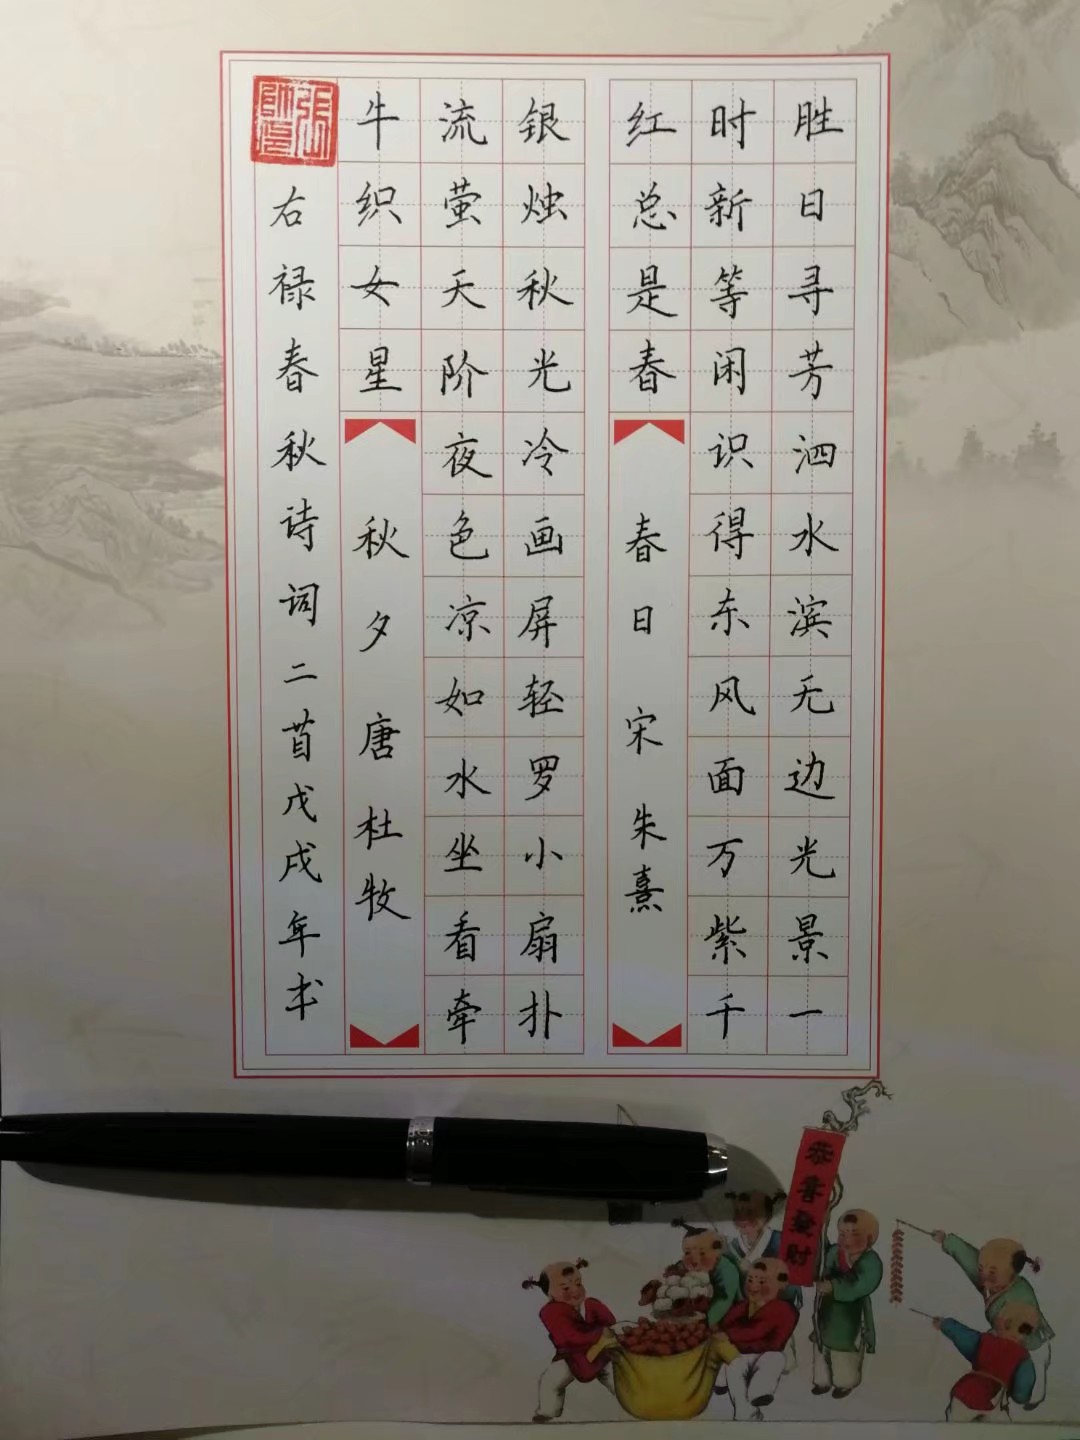 胜日寻芳泗水滨无边光景一
时新等闲识得东风面万紫千
红总是春
春日 宋 朱熹
银烛秋光冷画屏轻罗小扇扑
流萤天阶夜色凉如水坐看牵
牛织女星
秋夕 唐 杜牧
右禄春秋诗词二首戊戌年书
恭喜發財